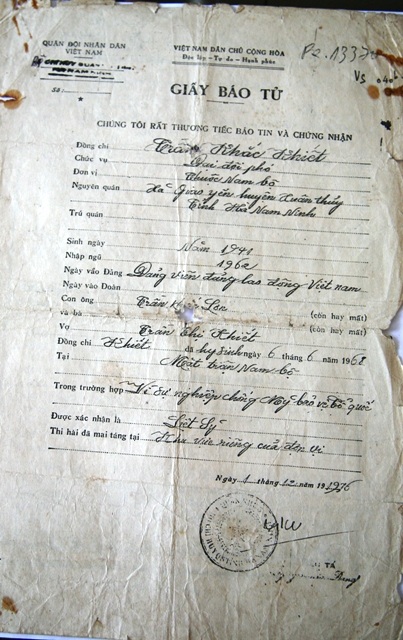 QUÂN ĐỘI NHÂN DÂN
VIỆT NAM
VIỆT NAM DÂN CHỦ CỘNG HÒA
Độc lập – Tự do – Hạnh phúc
Số:
GIẤY BÁO TỬ
CHÚNG TÔI RẤT THƯƠNG TIẾC BÁO TIN VÀ CHỨNG NHẬN
Đồng chí Trần Khắc Khiết
Chức vụ Đại đội phó
Đơn vị Thuộc Nam bộ
Nguyên quán Xã Giao yên huyện Xuân thủy
Trú quán Tỉnh Hà Nam Ninh
Sinh ngày Năm 1941
Nhập ngũ 1962
Ngày vào Đảng Đảng viên đảng lao động Việt nam
Ngày vào Đoàn
Con ông Trần (còn hay mất)
và bà (còn hay mất)
Vợ Trần Thị Khiết
Đồng chí Khiết đã hy sinh ngày 6 tháng 6 năm 1968
Tại Mặt trận Nam bộ
Trong trường hợp Vì sự nghiệp chống Mỹ bảo vệ tổ quốc
Được xác nhận là Liệt Sỹ
Thi hài đã mai táng tại Khu vực riêng của đơn vị
Ngày 1 tháng 12 năm 1976